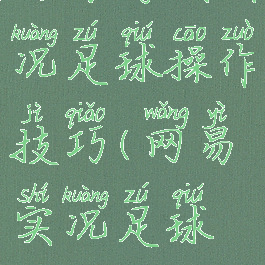 kuàng zú qiú cāo zuò
况足球操作
jì qiǎo wǎng yì
技巧(网易
shí kuàng zú qiú
实况足球